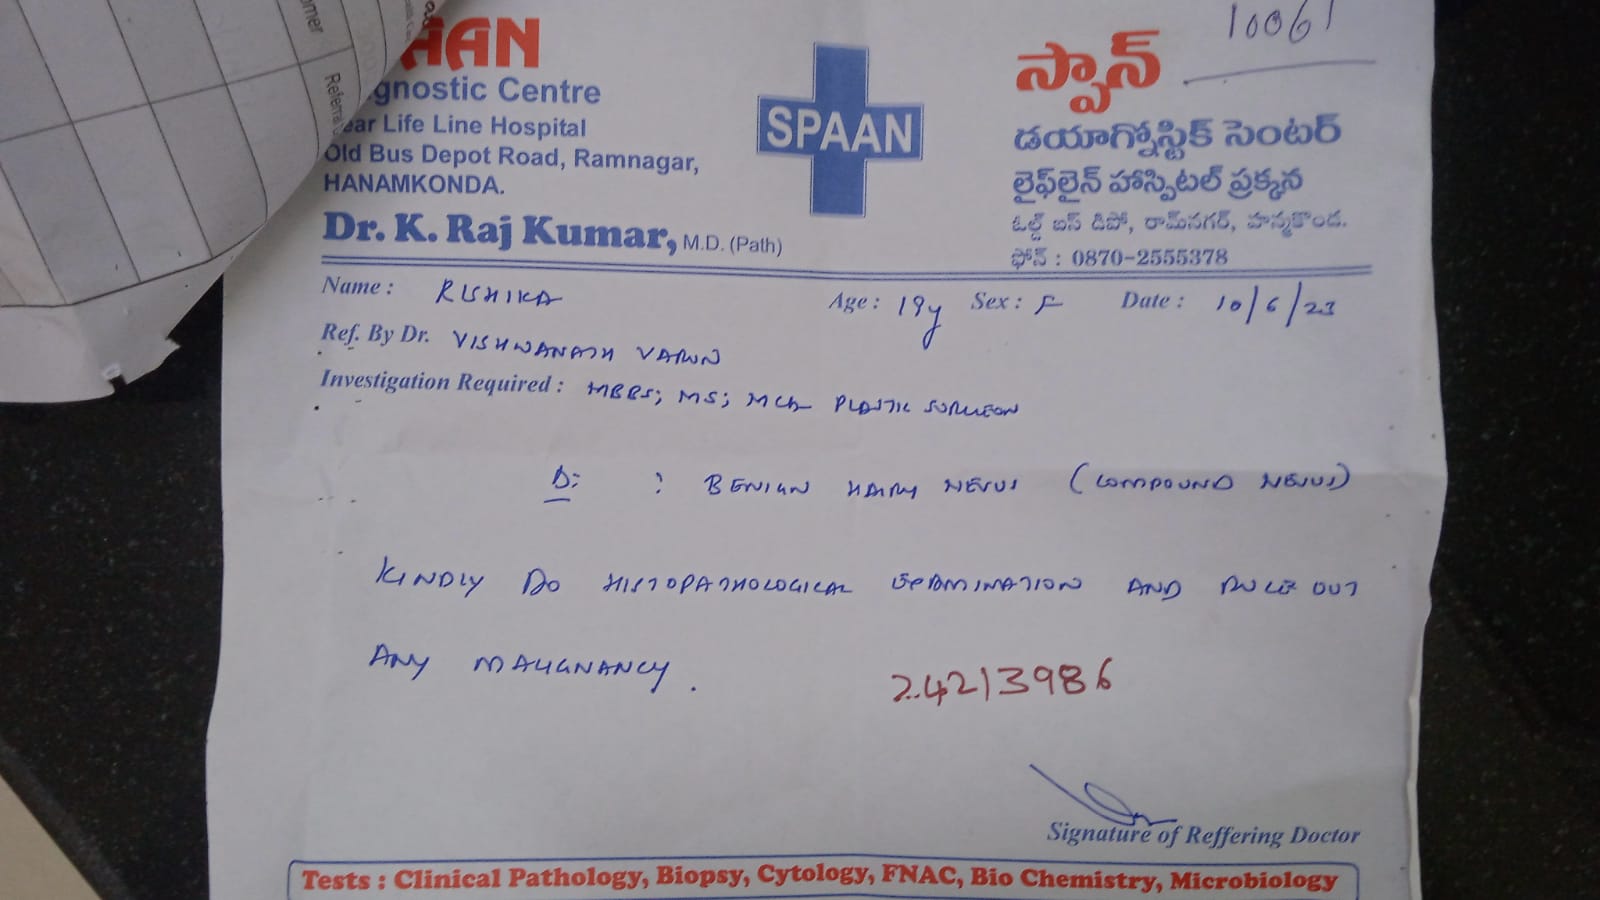 10061
HAAN
gnostic Centre
ear Life Line Hospital
Old Bus Depot Road, Ramnagar,
HANAMKONDA.
Dr. K. Raj Kumar, M.D. (Path)
SPAAN
స్పాన్
డయాగ్నోస్టిక్ సెంటర్
లైఫ్‌లైన్ హాస్పిటల్ ప్రక్కన
ఓల్డ్ బస్ డిపో, రామ్‌నగర్, హన్మకొండ.
ఫోన్ : 0870-2555378
Name : RISHIKA Age : 19y Sex : F Date : 10/6/23
Ref. By Dr. VISHWANATH VARUN
Investigation Required : MBBS; MS; MCh PLASTIC SURGEON
D: : BENIGN HAIRY NEVUS (COMPOUND NEVUS)
KINDLY DO HISTOPATHOLOGICAL EXAMINATION AND RULE OUT
ANY MALIGNANCY.
24213986
Signature of Reffering Doctor
Tests : Clinical Pathology, Biopsy, Cytology, FNAC, Bio Chemistry, Microbiology